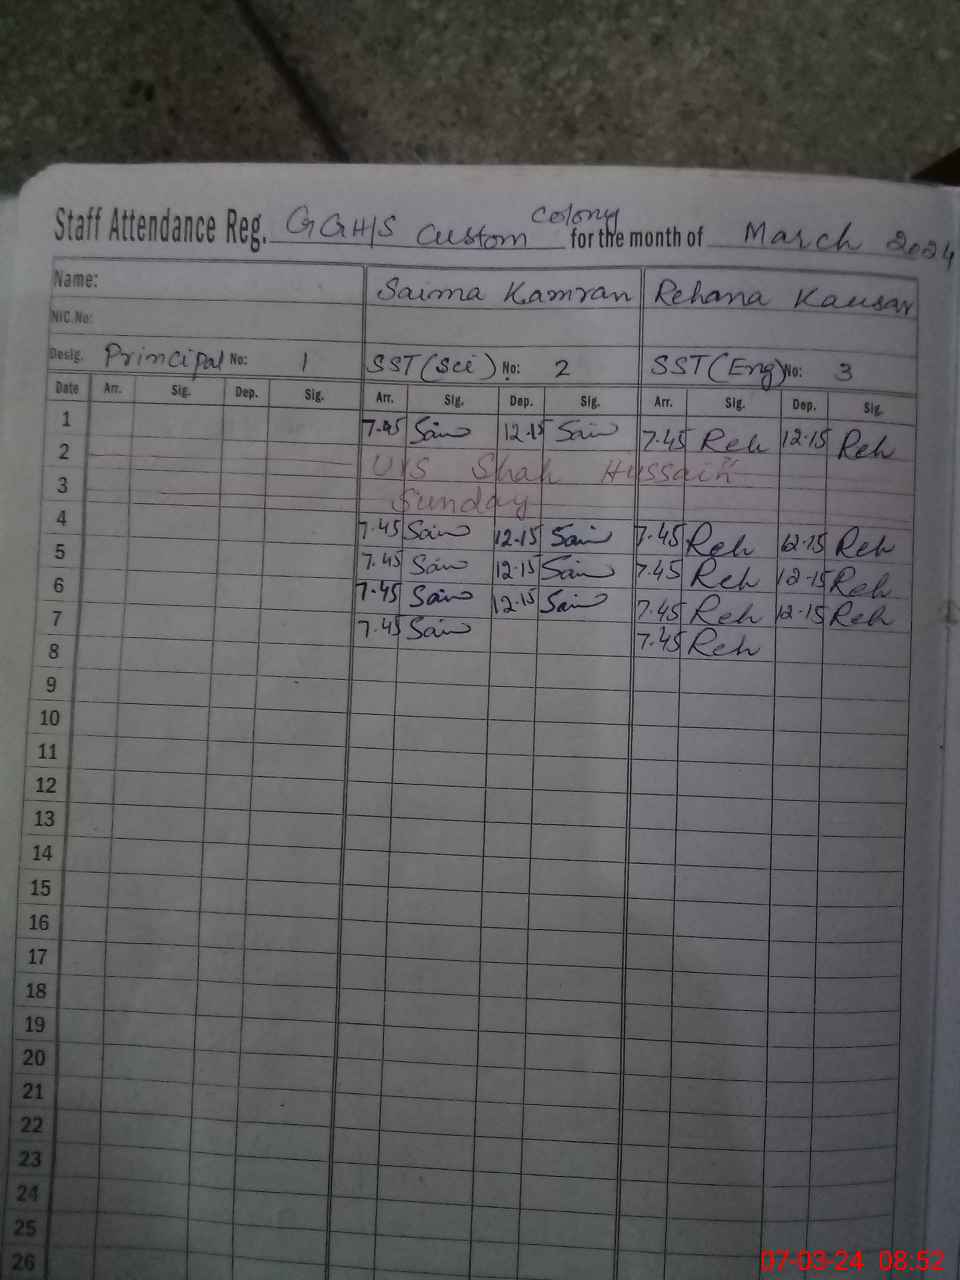 Staff Attendance Reg. GGH/S Custom Colony for the month of March 2024
Name: Saima Kamran Rehana Kausar
NIC.No:
Desig. Principal No: 1 SST (Sci) No: 2 SST (Eng) No: 3
Date Arr. Sig. Dep. Sig. Arr. Sig. Dep. Sig. Arr. Sig. Dep. Sig.
1 7.45 Saim 12.15 Saim 7.45 Reh 12.15 Reh
2 U/S Shah Hussain
3 Sunday
4 7.45 Saim 12.15 Saim 7.45 Reh 12.15 Reh
5 7.45 Saim 12.15 Saim 7.45 Reh 12.15 Reh
6 7.45 Saim 12.15 Saim 7.45 Reh 12.15 Reh
7 7.45 Saim 7.45 Reh
8
9
10
11
12
13
14
15
16
17
18
19
20
21
22
23
24
25
26
07-03-24 08:52